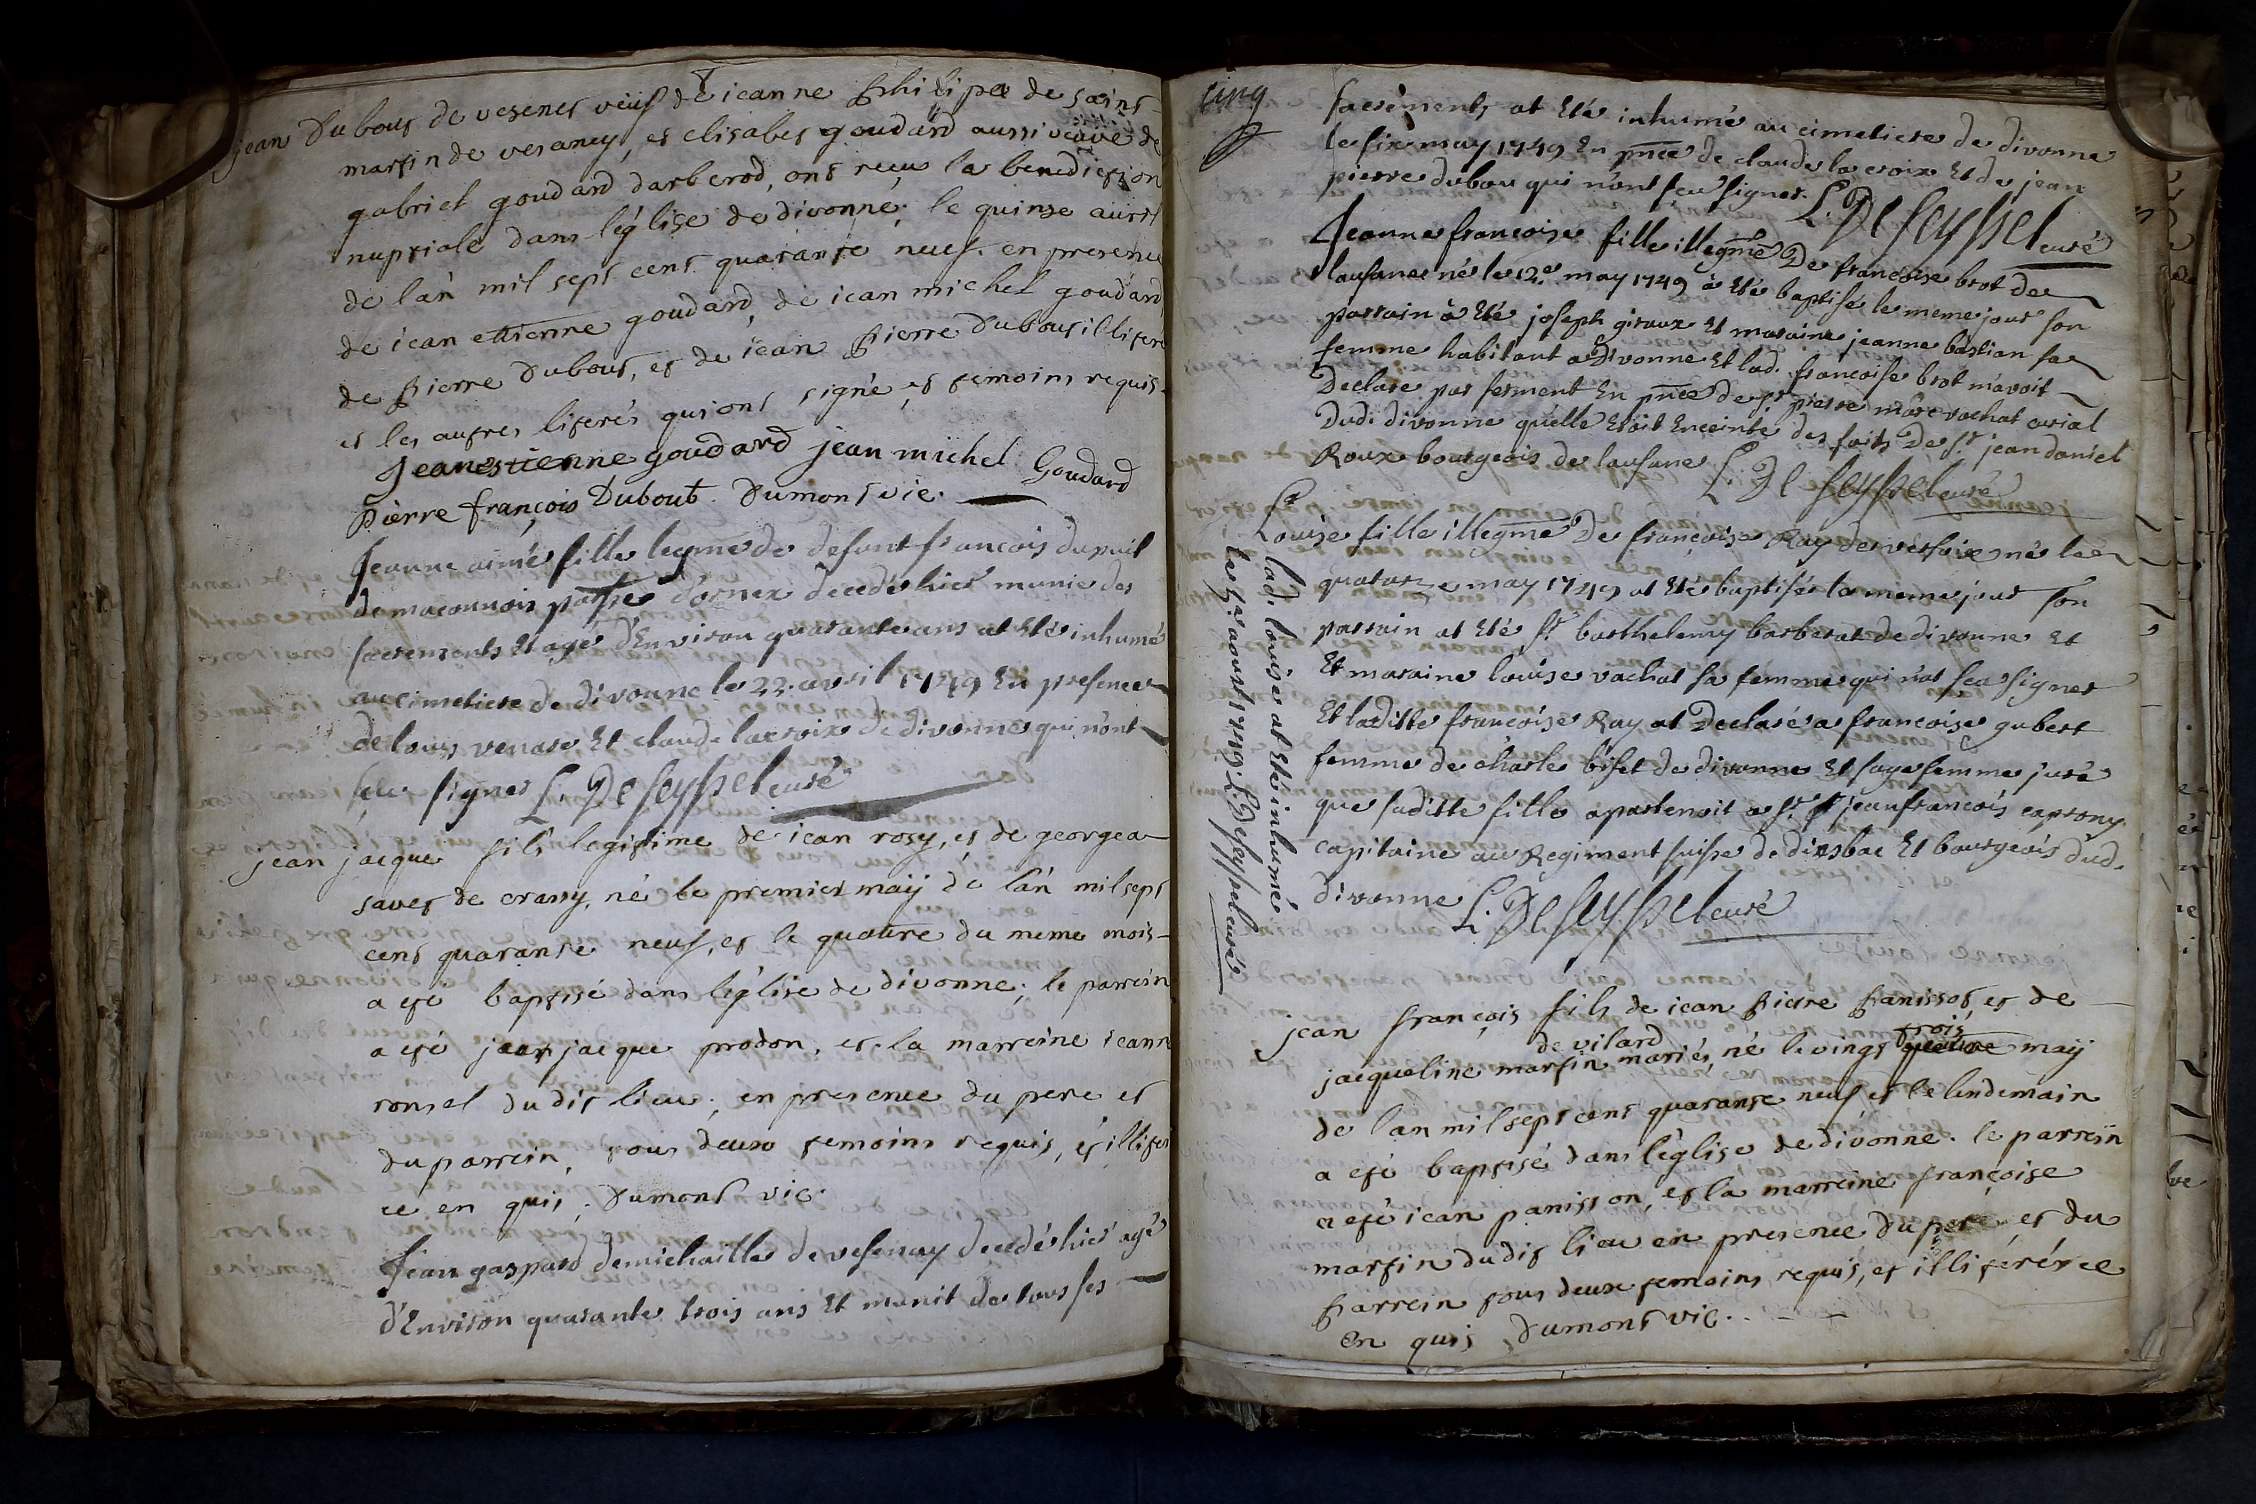 jean Dubout de vesenet veuf de jeanne philipe de saint
martin de vesancy, et elisabet goudard aussi veuve de
gabriel goudard darberod, ont reçu la benediction
nuptiale dans léglise de divonne; le quinze
de lán mil sept cent quarante neuf. en presence
de jean ettienne goudard, de jean michel goudard
de pierre Dubout, et de jean pierre Dubout illiteré
et les autres literés qui ont signé et temoins requis.
Jeanestienne goudard jean michel Goudard
pierre françois Dubout. Dumont vic.
Jeanne aimé fille legme de defunt francois dupuit
de maconnois parsse d'ornex decedé hier munie des
sacrements et agé d'Environ quarante ans at Eté inhumé
au cimetiere de divonne le 22. avril 1749 En presence
de louis venare Et claude lacroix de divonne qui n'ont
sçu signer L. De seyssel curé
jean jacque fils legitime de jean rosy, et de georgea
savet de crassy, né le premier maÿ de lán mil sept
cent quarante neuf, et le quatre du meme mois
a eté baptisé dans léglise de divonne; le parrein
a eté jean jacque prodon, et la marreine jeann
ronsel du dit lieu; en presence du pere et
du parrein, tous deux temoins requis, et illiter
ée en quis; Dumont vic.
Jean gaspard demichaille de vesenay decedé hier agé
d'Environ quarante trois ans Et munit de tous ses
cinq
sacrements at Eté inhumé au cimetiere de divonne
le six may 1749 En pnce de claude la croix Et de jean
pierre dubou qui n'ont sceu signer. L. De seyssel curé
Jeanne francoise fille illegme De francoise brot de
lausanne né le 12e may 1749 à Eté baptisé le meme jour son
parrain à Eté joseph giroux Et maraine jeanne bastian sa
femme habitant a Divonne Et lad. francoise brot m'avoit
Declare par serment En pnce de sr pierre marc vachat curial
Dud. divonne quelle Etoit Enceinte des faits De sr jean daniel
Roux bourgeois de lausane L. De seyssel curé
Louise fille illegme De françoise Ray de versoix né le
quatorze may 1749 at Eté baptisé le meme jour son
parrain at Eté sr barthelemy barberat de divonne Et
Et maraine louise vachat sa femme qui n'at sceu signer
Et laditte francoise Ray at Declaré a francoise gubert
femme de charle biset de divonne Et sage femme juré
que suditte fille apartenoit a sr jean francois caprony
capitaine au Regiment suisse de diesbac Et bourgeois dud.
divonne L. De seyssel curé
lad. louise at Eté inhumée
le 7e aoust 1749. L. De seyssel curé
jean françois fils de jean pierre panissot, et de
de vilard trois
jacqueline martin mariés, né le vingt quatre maÿ
de lan mil sept cent quarante neuf et le lendemain
a eté baptisé dans léglise de divonne. le parrein
a eté jean panisson, et la marreine françoise
martin du dit lieu en presence du pere et du
parrein tous deux temoins requis, et illiterér ee
en quis, Dumont vic.